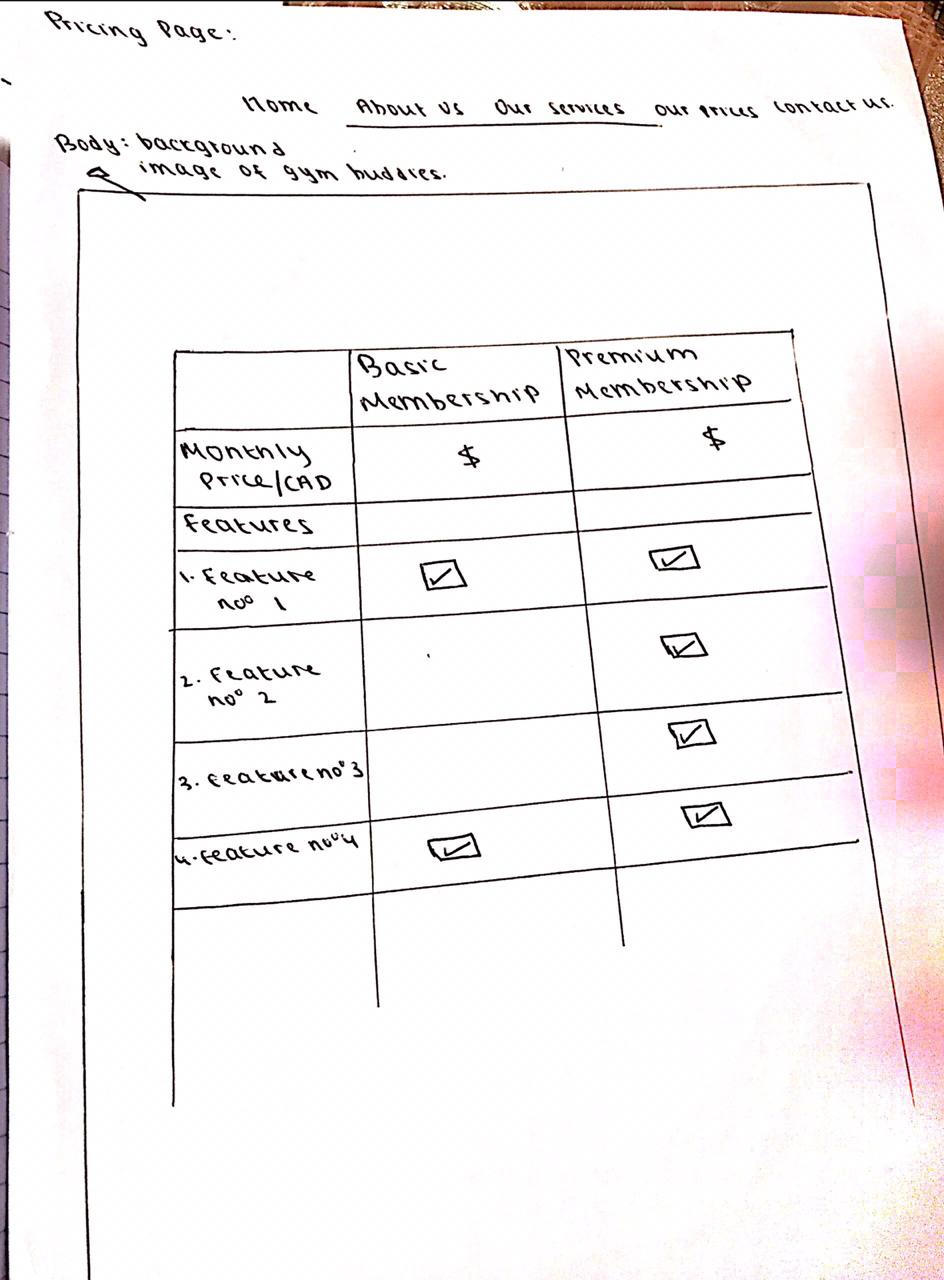 Pricing Page:
Home About Us Our services our prices contact us.
Body: background
image of gym buddies.
Basic
Membership
Premium
Membership
Monthly
Price/CAD
$
$
Features
1. Feature
no° 1
2. Feature
no° 2
3. Feature no°3
4. Feature no°4